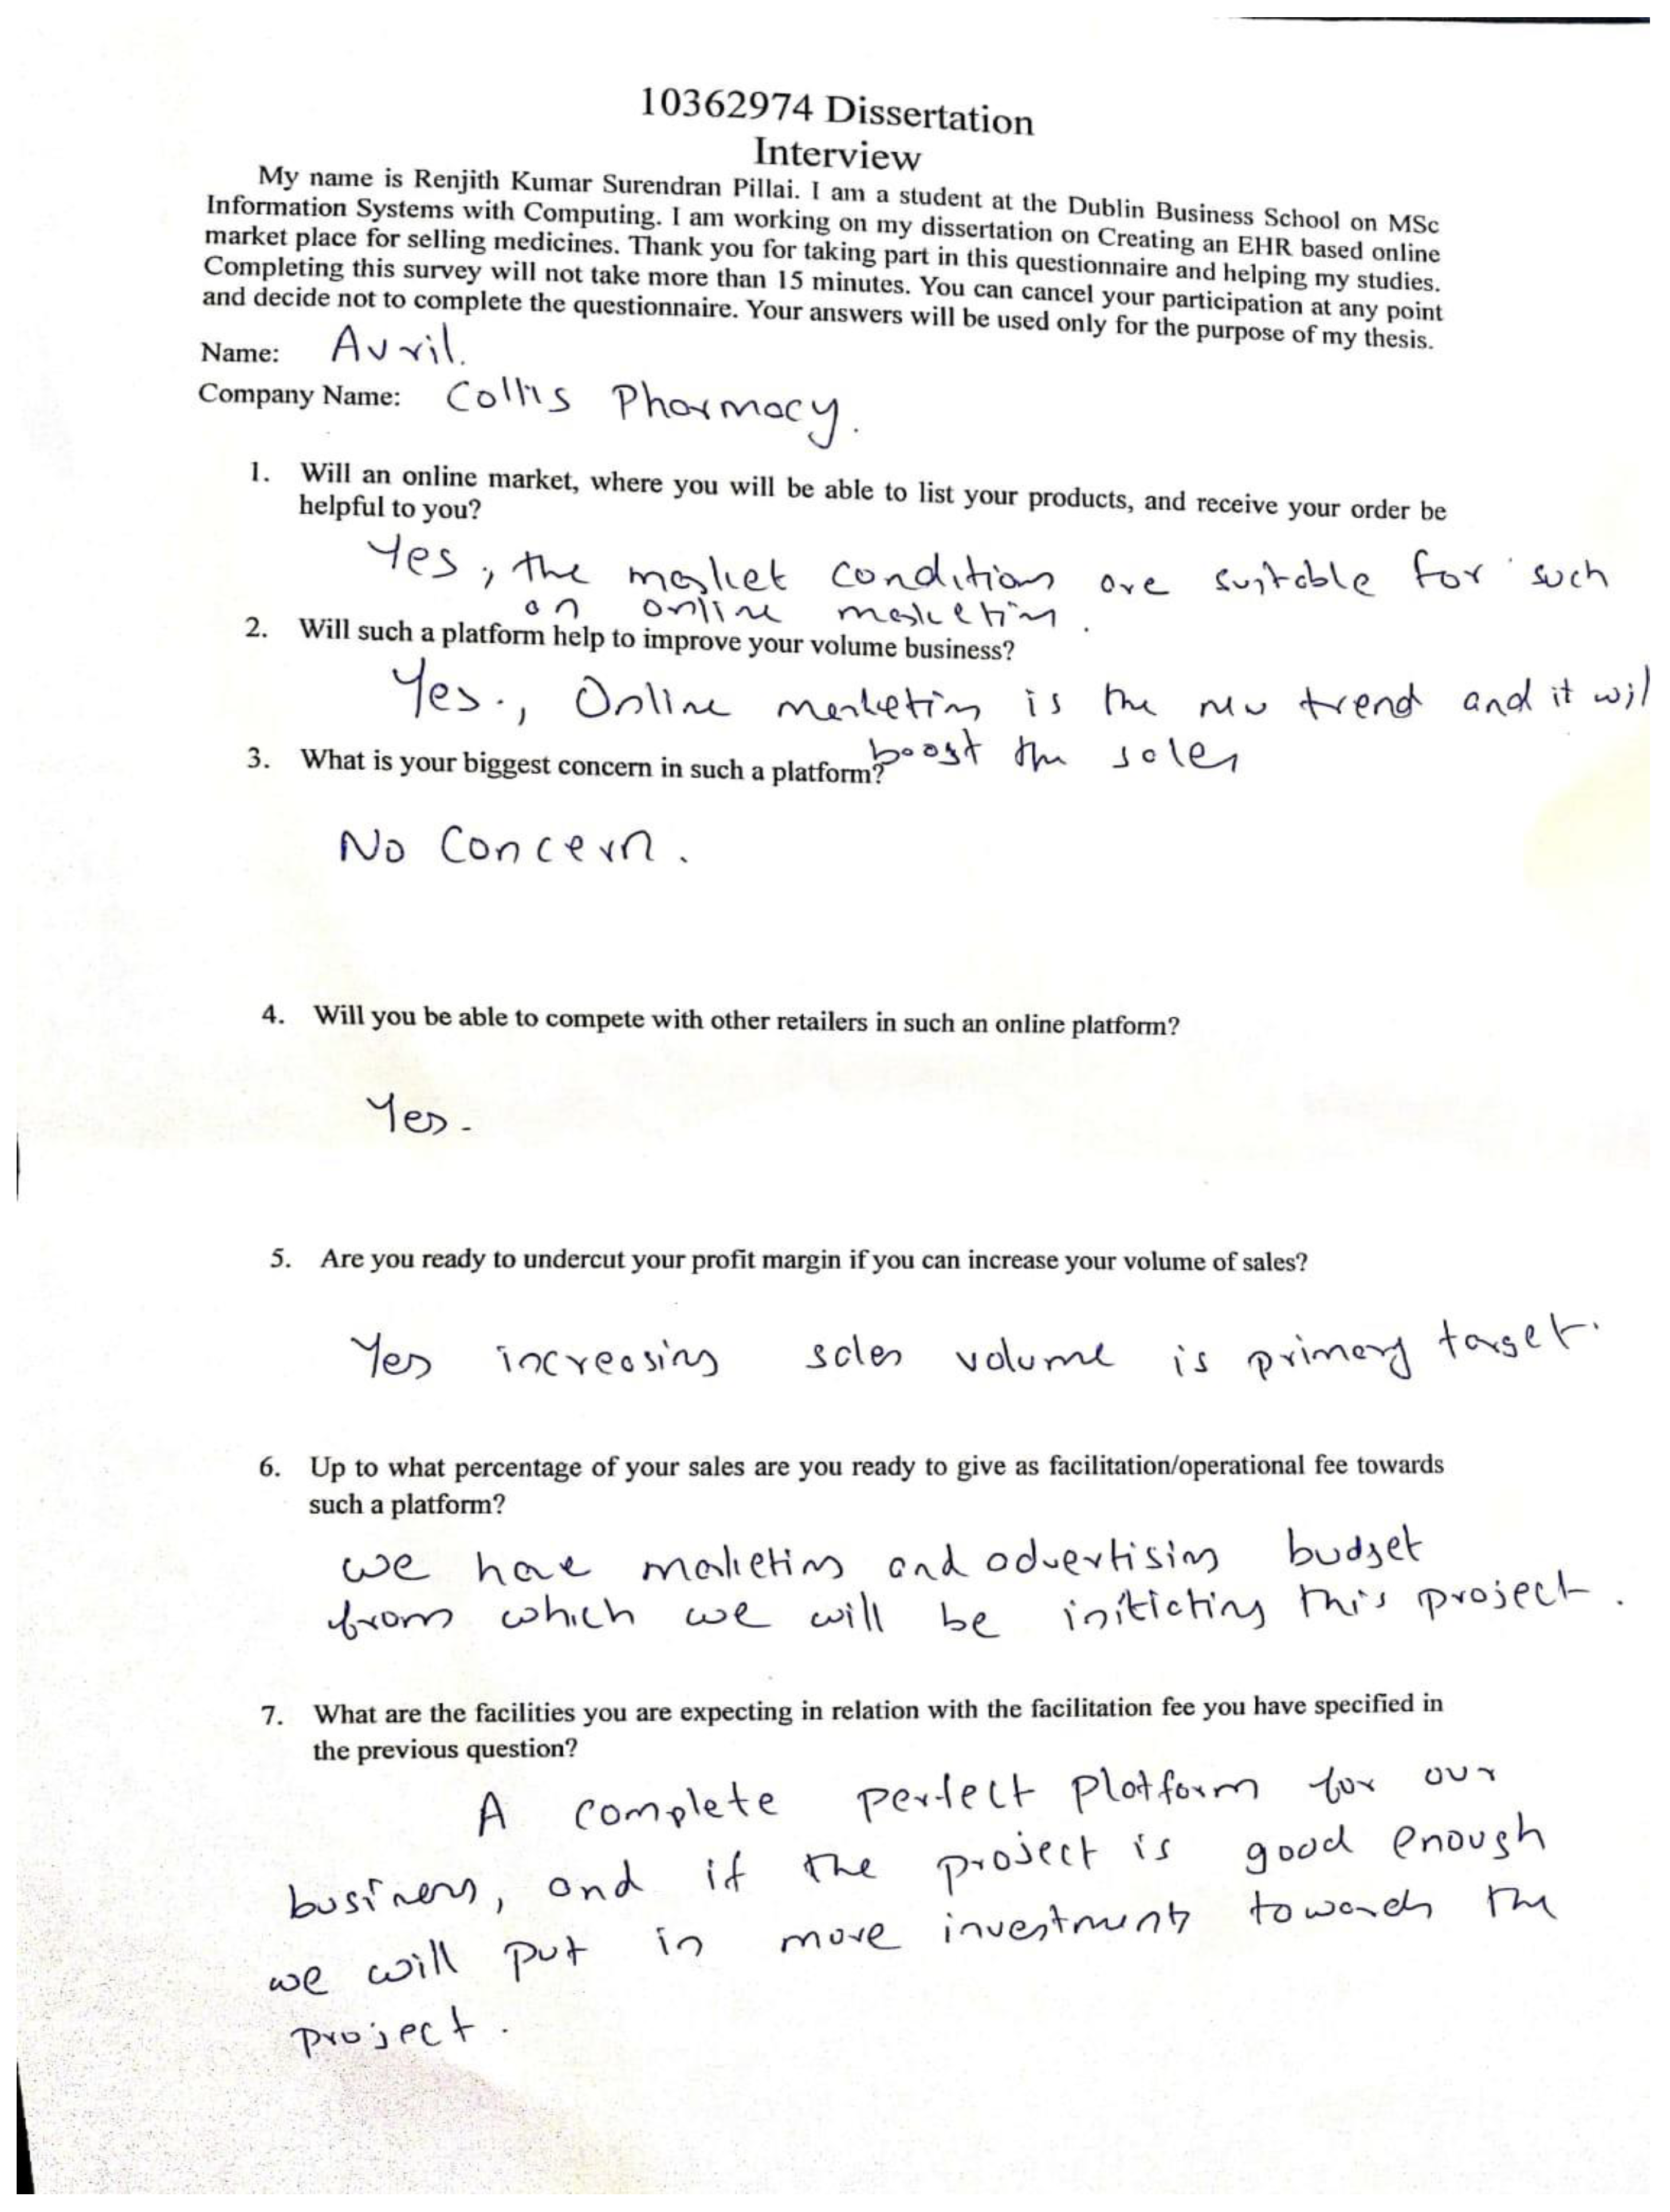 10362974 Dissertation
Interview
My name is Renjith Kumar Surendran Pillai. I am a student at the Dublin Business School on MSc
Information Systems with Computing. I am working on my dissertation on Creating an EHR based online
market place for selling medicines. Thank you for taking part in this questionnaire and helping my studies.
Completing this survey will not take more than 15 minutes. You can cancel your participation at any point
and decide not to complete the questionnaire. Your answers will be used only for the purpose of my thesis.
Name: Avril.
Company Name: Collis Pharmacy.
1. Will an online market, where you will be able to list your products, and receive your order be
helpful to you?
Yes, the market conditions are suitable for such
an online marketing.
2. Will such a platform help to improve your volume business?
Yes., Online marketing is the new trend and it wil
boost the sales
3. What is your biggest concern in such a platform?
No Concern.
4. Will you be able to compete with other retailers in such an online platform?
Yes.
5. Are you ready to undercut your profit margin if you can increase your volume of sales?
Yes increasing sales volume is primary target.
6. Up to what percentage of your sales are you ready to give as facilitation/operational fee towards
such a platform?
we have marketing and advertising budget
from which we will be initiating this project.
7. What are the facilities you are expecting in relation with the facilitation fee you have specified in
the previous question?
A complete perfect platform for our
business, and if the project is good enough
we will put in more investments towards the
project.